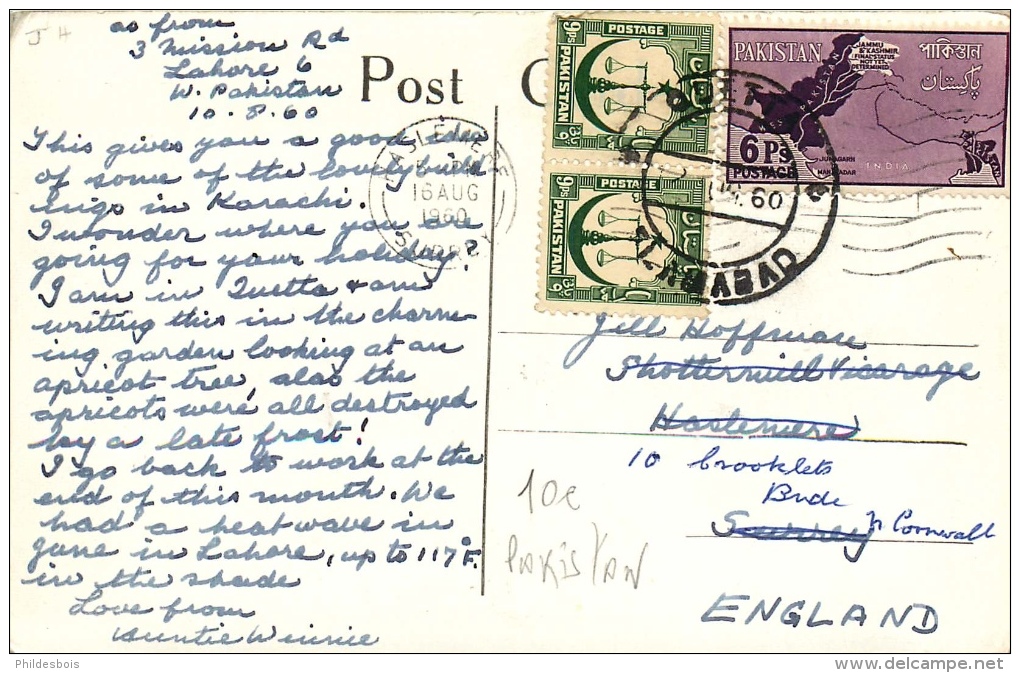 J H
as from
3 Mission Rd
Lahore 6
W. Pakistan
10.8.60
This gives you a good idea
of some of the lovely build
ings in Karachi.
I wonder where you are
going for your holiday?
I am in Quetta & am
writing this in the charm-
ing garden looking at an
apricot tree, alas the
apricots were all destroyed
by a late frost!
I go back to work at the
end of this month. We
had a heat wave in
June in Lahore, up to 117°F.
in the shade
Love from
Auntie Winnie
Post C
HASLEMERE
16 AUG
1960
SURREY
9Ps
POSTAGE
PAKISTAN
9Ps
POSTAGE
PAKISTAN
PAKISTAN
JAMMU
& KASHMIR
FINAL STATUS
NOT YET
DETERMINED
পাকিস্তান
پاکستان
W. PAKISTAN
JUNAGARH
MANAVADAR
INDIA
6 Ps
POSTAGE
QUETTA
60
Jill Hoffman
Shottermill Vicarage
Haslemere
10 Brooklets
Bude
Surrey N Cornwall
ENGLAND
10c
PAKISTAN
Phildesbois
www.delcampe.net